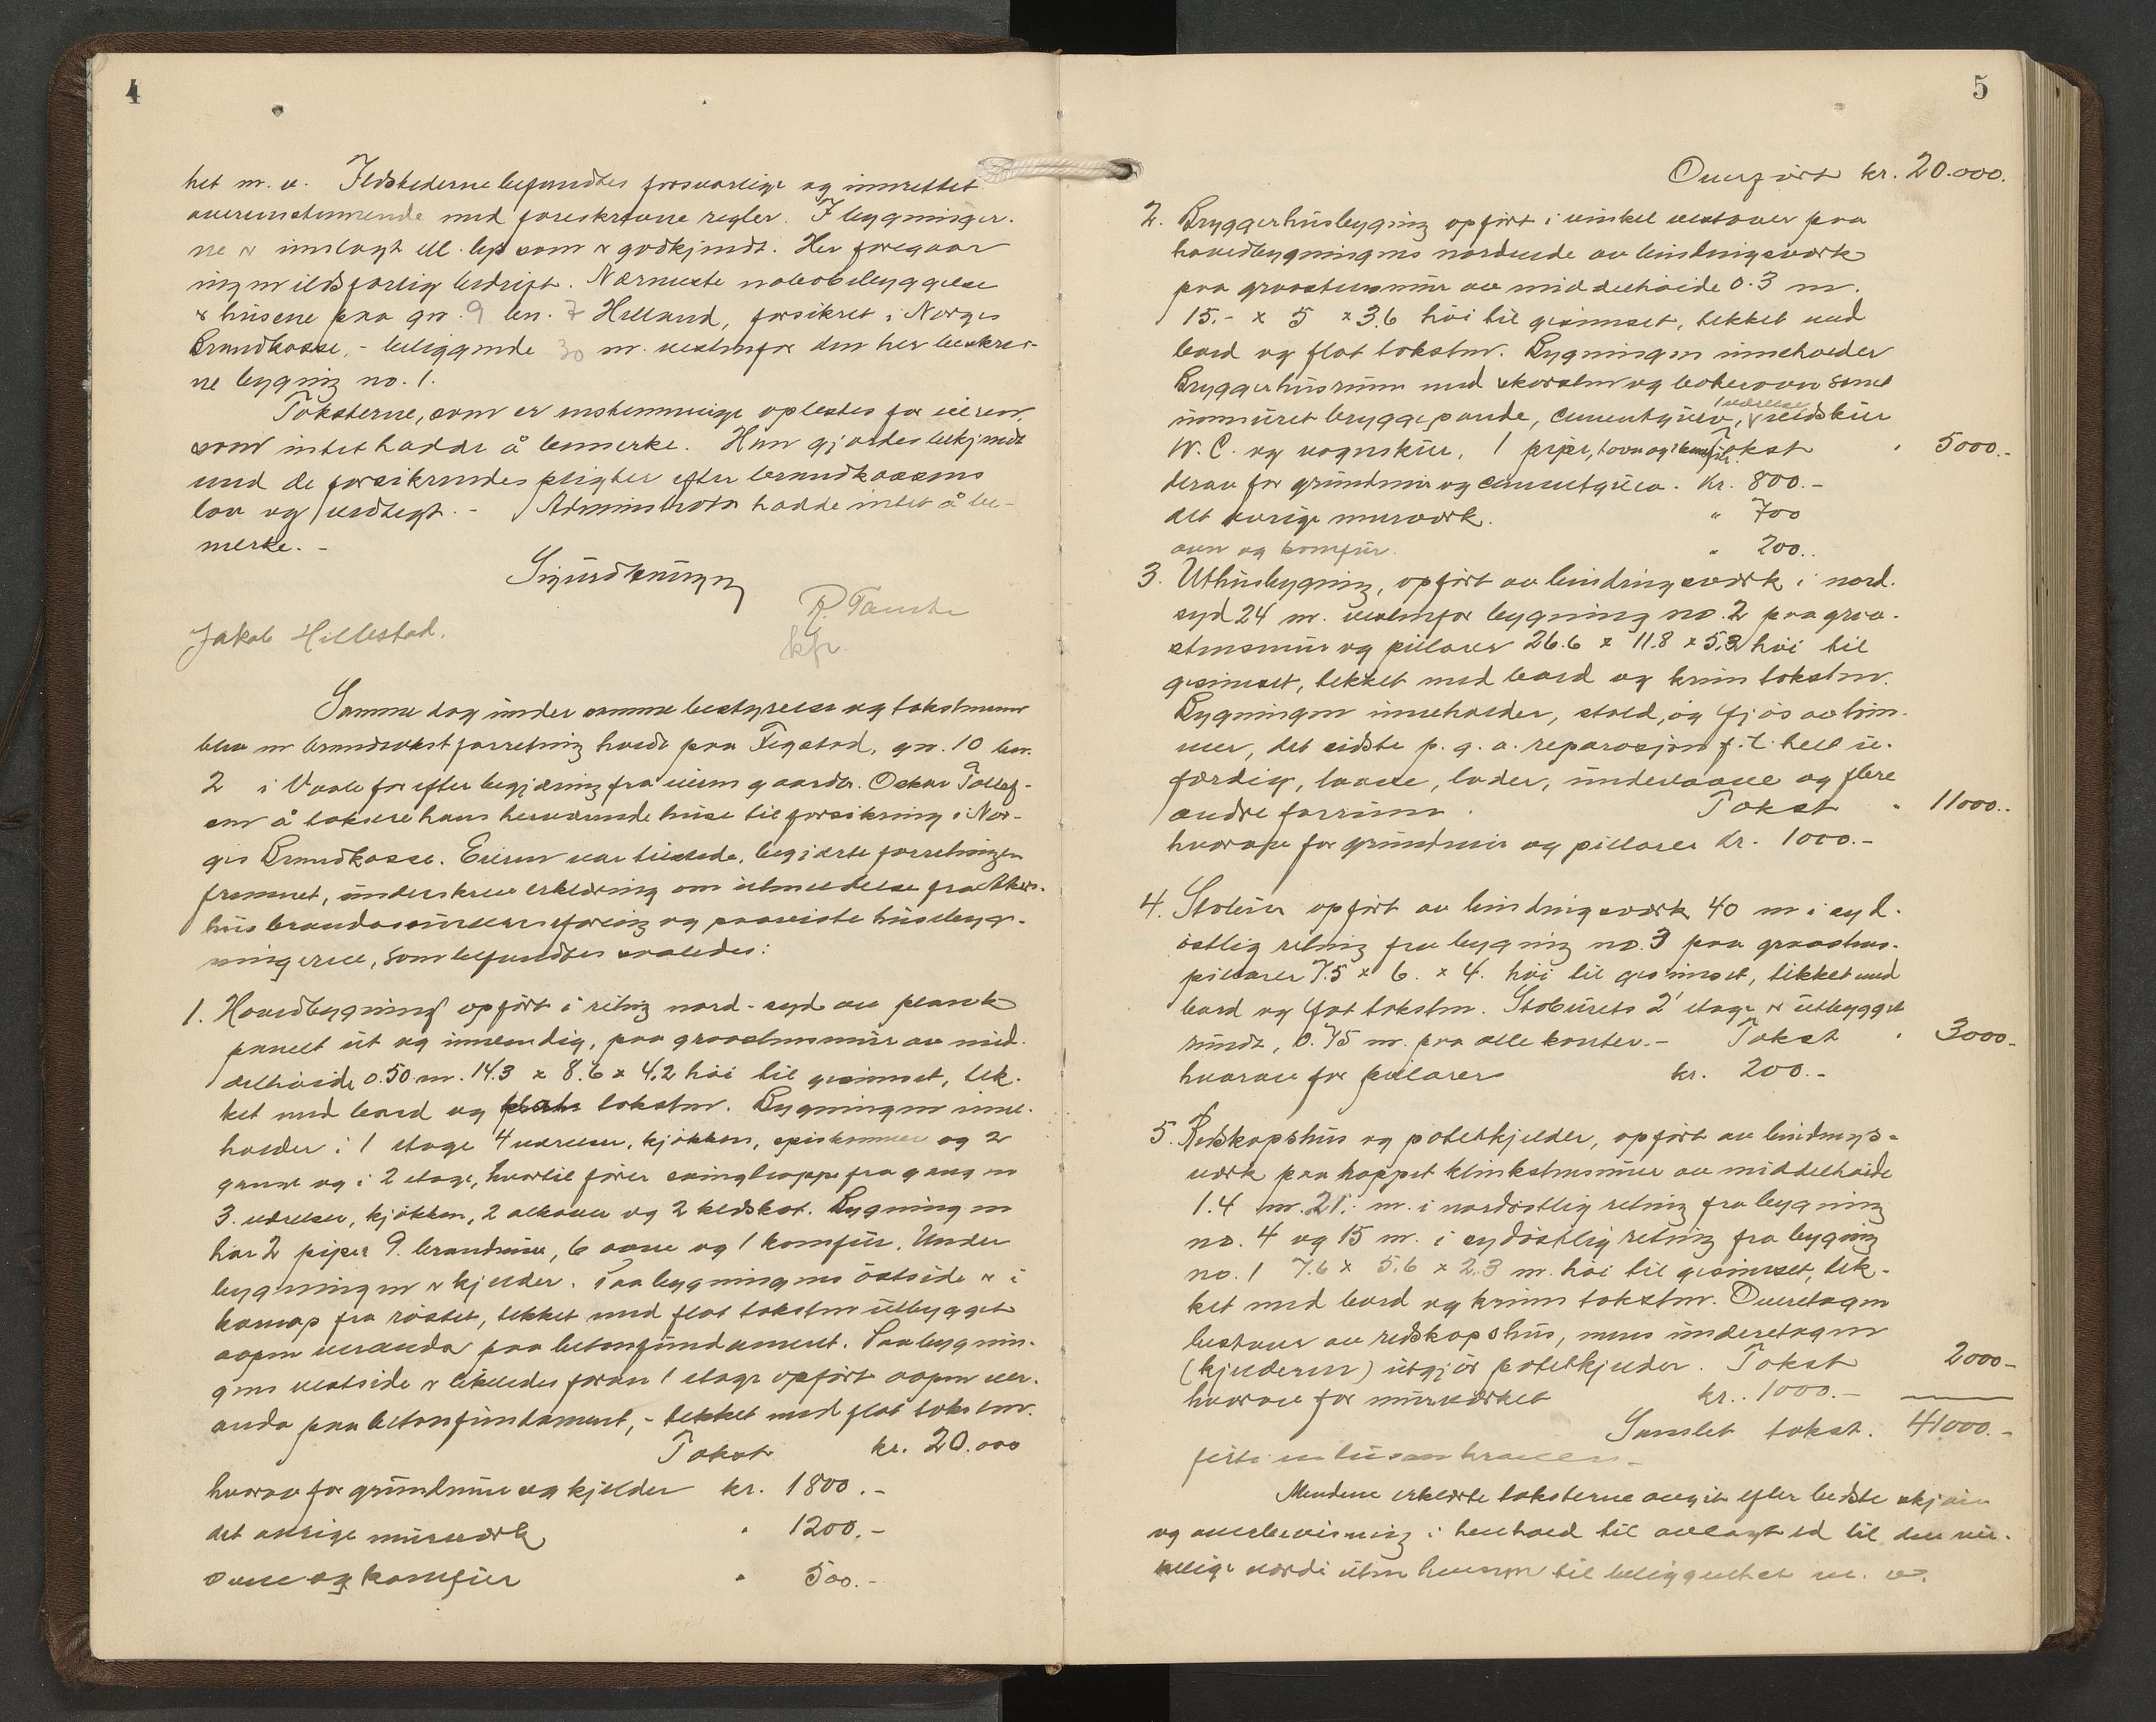 4
het m. v. Ildstederne befandtes forsvarlige og innrettet
overenstemmende med foreskrevne regler. I bygninger-
ne er innlagt el. lys som er godkjendt. Her foregaar
ingen ildsfarlig bedrift. Nærmeste nabobebyggelse
er husene paa gn. 9 bn. 7 Helland, forsikret i Norges
Brandkasse, - beliggende 30 m. vestenfor den her beskrev-
ne bygning no. 1.
Taksterne, som er enstemmige oplestes for eieren
som intet hadde å bemerke. Han gjordes bekjendt
med de forsikrendes pligter efter brandkassens
lov og vedtegt. - Administrator hadde intet å be-
merke. -
Jakob Hillestad.
Samme dag under samme bestyrelse og takstmenn
blev en brandtakstforretning holdt paa Figstad, gn. 10 bn.
2 i Vaale for efter begjæring fra eieren gaardbr. Oskar Tollef-
sen å taksere hans herværende huse til forsikring i Nor-
ges Brandkasse. Eieren var tilstede, begjærte forretningen
fremmet, underskrev erklæring om utmeldelse fra Akers-
hus brandassuranseforening og paaviste husebyg-
ningerne, som befandtes saaledes:
1. Hovedbygning opført i retning nord-syd av plank
panelt ut og innvendig, paa graastensmur av mid-
delhøide 0.50 m. 14.3 x 8.6 x 4.2 høi til gesimset, tek-
ket med bord og takstene. Bygningen inne-
holder i 1 etage 4 værelser, kjøkken, spiskammer og 2
gange og i 2 etage, hvortil fører svingtrappe fra gangen
3. værelser, kjøkken, 2 alkover og 2 kledskot. Bygningen
har 2 piper 9. brandmure, 6 ovne og 1 komfur. Under
bygningen er kjelder. Paa bygningens østside er i
fra røstet, tekket med flat taksten utbygget
aapen veranda paa betonfundament. Paa bygnin-
gens vestside er likeledes foran 1 etage opført aapen ver-
anda paa betonfundament, - tekket med flat taksten.
Takst kr. 20.000
hvorav for grundmur og kjelder kr. 1800.-
det øvrige murverk " 1200.-
ovne og komfur " 500.-
5
Overført kr. 20.000.
2. Bryggerhusbygning opført i vinkel vestover paa
hovedbygningens nordende av bindingsverk
paa graastensmur av middelhøide 0.3 m.
15.- x 5 x 3.6 høi til gesimset, tekket med
bord og flat taksten. Bygningen inneholder
Bryggerhusrum med skorsten og bakerovn samt
innmuret bryggepande, cementgulv, 1 værelse, vedskur
W.C. og vognskur. 1 pipe, 1 ovn og 1 komfur. Takst " 5000.-
derav for grundmur og cementgulv. Kr. 800.-
det øvrige murverk. " 700
ovn og komfur " 200..
3. Uthusbygning, opført av bindingsverk i nord-
syd 24 m. vestenfor bygning no. 2 paa graa-
stensmur og pillarer 26.6 x 11.8 x 5.3 høi til
gesimset, tekket med bord og krum taksten.
Bygningen inneholder, stald, og fjøs av tøm-
mer, det sidste p. g. a. reparasjon f. t. helt u-
færdig, laave, lader, underlaave og flere
andre forrum. Takst " 11000..
hvorav for grundmur og pillarer kr. 1000.-
4. Stabur opført av bindingsverk 40 m i syd-
østlig retning fra bygning no. 3 paa graastens-
pillarer 7.5 x 6. x 4. høi til gesimset, tekket med
bord og flat taksten. Staburets 2' etage er utbygget
rundt, 0.75 m. paa alle kanter. - Takst " 3000.-
hvorav for pillarer kr. 200.-
5. Redskapshus og potetkjelder, opført av bindings-
verk paa hoppet klinkstensmur av middelhøide
1.4 m. 21. m. i nordøstlig retning fra bygning
no. 4 og 15 m. i sydøstlig retning fra bygning
no. 1 7.6 x 5.6 x 2.3 m. høi til gesimset, tek-
ket med bord og krum taksten. Overetagen
bestaaer av redskapshus, mens underetagen
(kjelderen) utgjør potetkjelder. Takst 2000-
hvorav for murverket kr. 1000.-
Samlet takst. 41000.-
Mendene erklærte taksterne avgit efter bedste skjøn
og overbevisning i henhold til avlagt ed til den vir-
kelige værdi uten hensyn til beliggenhet m. v.